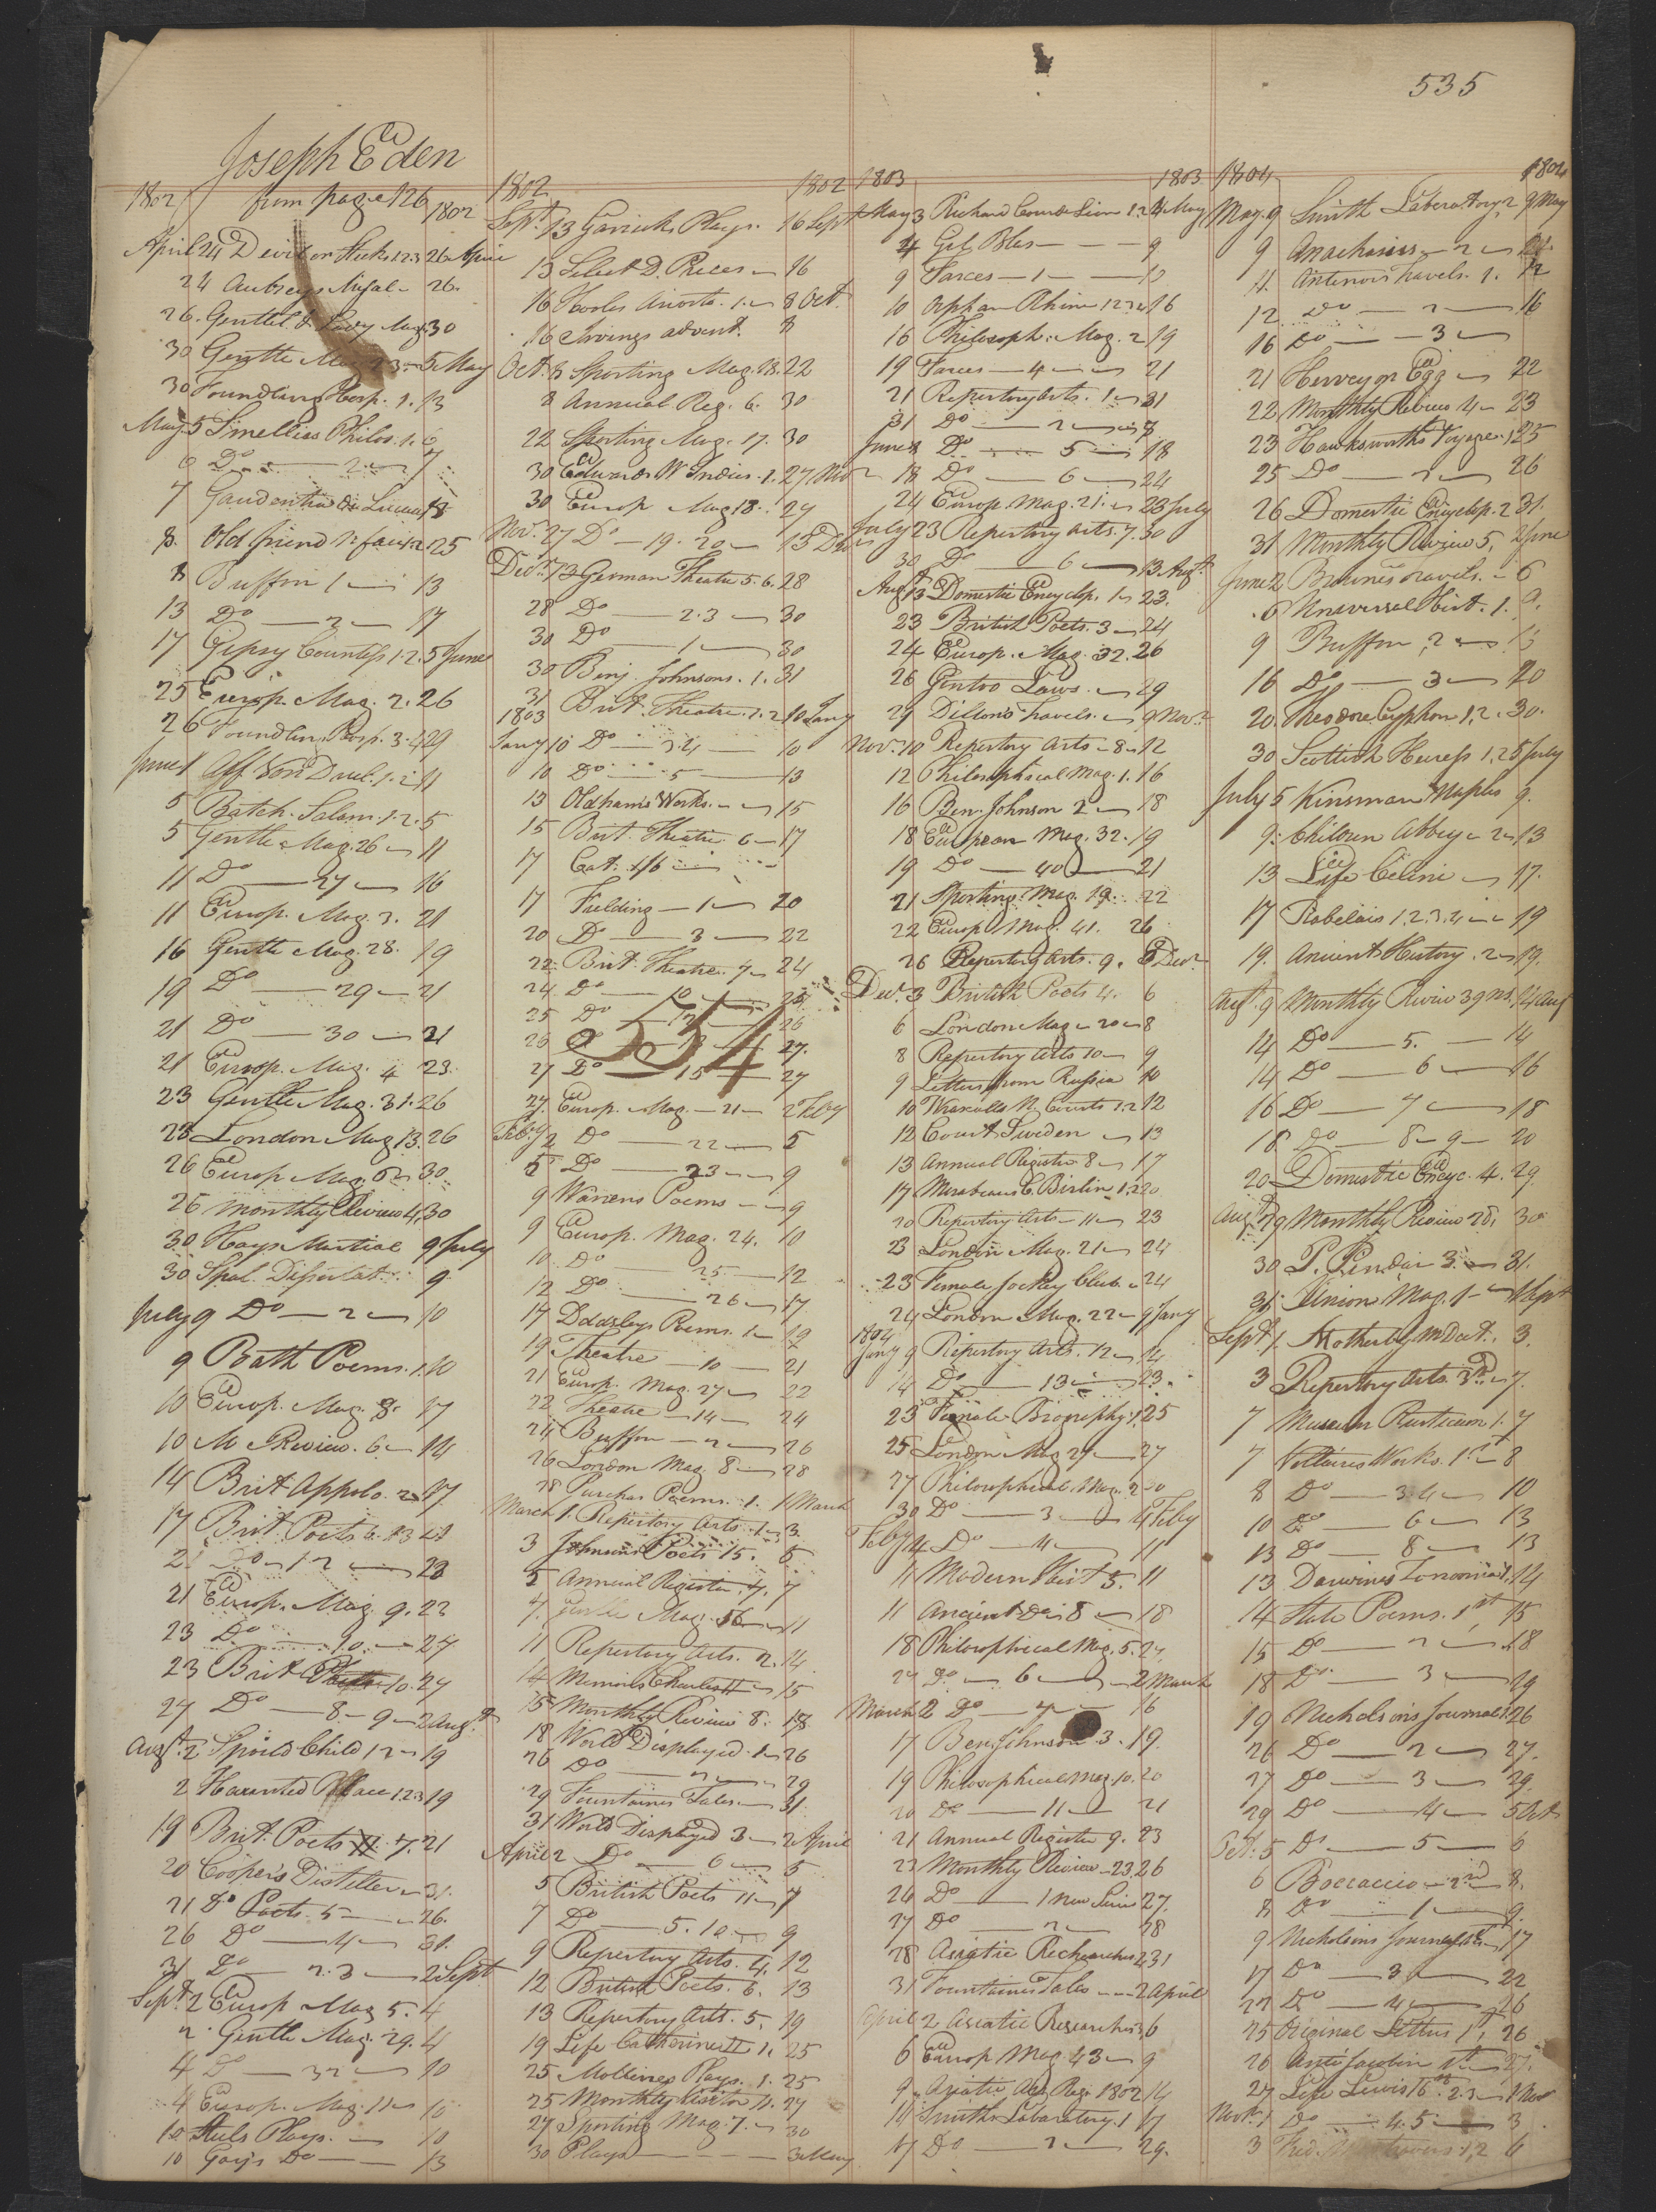 535
Joseph Eden
from page 126
1802 1802
April 24 Devil on Sticks 1.2.3 26 April
24 Aubreys 26.
26. Gentle & Mag. 30
30 Gentle Mag 23. 5 May
30 Foundling Hosp. 1. 13
May 5 Smellies Philos. 1. 6
6 Do 2 7
7 Gaudentio di Lucca 13
8. Old friend 1.2 25
8 Buffon 1 13
13 Do 2 17
17 Gipsy Countess 1.2. 5 June
25 Europ. Mag. 2. 26
26 Foundling Hosp. 3.4 29
June 1 Aff. Von Duel. 1.2 11
5 Batch. Salam. 1.2. 5
5 Gentle Mag. 26 11
11 Do 27 16
11 Europ. Mag. 3. 21
16 Gentle Mag. 28. 19
19 Do 29 21
21 Do 30 21
21 Europ. Mag. 4 23
23 Gentle Mag. 31. 26
23 London Mag 13. 26
26 Europ Mag. 30
26 Monthly Review 4, 30
30 Hays Martial 9 July
30 Spal. Dissertat. 9
July 9 Do 2 10
9 Bath Poems. 1. 10
10 Europ. Mag. 8 17
10 M Review. 6 14
14 Brit Appolo. 2 17
17 Brit. Poets 6. 13 21
21 Do 12 23
21 Europ. Mag. 9. 23
23 Do 10 27
23 Brit 10. 27
27 Do 8 - 9 2 Augt
Augt 2 Spoild Child 1 2 19
2 Haunted Place 1.2.3 19
19 Brit. Poets 7. 21
20 Coopers Distiller 31.
21 Do Poets. 5 26.
26 Do 4 31.
31 Do 2.3 2 Sept
Sept 2 Europ Mag 5. 4
2 Gentle Mag. 29. 4
4 Do 32 10
4 Europ. Mag. 11 10
10 Plays. 10
10 Gay's Do 13
1802 1802
Sept 13 Garricks Plays. 16 Sept
13 Select D. Pieces 16
16 Hooles Ariosto. 1. 8 Oct.
16 Irvings advent. 8
Oct. 8 Sporting Mag. 18. 22
8 Annual Reg. 6. 30
22 Sporting Mag. 17. 30
30 Edwards W Indies. 1. 27 Nov
30 Europ Mag 18. 27
Nov. 27 Do 19. 20 13 Decr
Decr 13 German Theatre 5.6. 28
28 Do 2.3 30
30 Do 1 30
30 Benj. Johnsons. 1. 31
31 Brit. Theatre. 1.2 10 Jany
1803
Jany 10 Do 3.4 10
10 Do 5 13
13 Oldhams Works. 15
15 Brit. Theatre 6 17
17 Cat.
17 Fielding 1 20
20 Do 3 22
22 Brit. Theatre. 7 24
24 Do 10
25 Do 12 26
26 Do 13 27.
27 Do 15 27
534
27 Europ. Mag. 21 2 Feby
Feby 2 Do 22 5
5 Do 23 9
9 Warrens Poems 9
9 Europ. Mag. 24. 10
10 Do 25 12
12 Do 26 17
17 Dodsleys Poems. 1 19
19 Theatre 10 21
21 Europ. Mag. 27 22
22 Theatre 14 24
24 Buffon 2 26
26 London Mag. 8 28
28 Purchas Poems. 1. 1 March
March 1. Repertory Arts 1 3.
3 Johnsons Poets 15. 5
5 Annual Register. 7. 7
7. Gentle Mag. 56 11
11 Repertory Arts. 2. 14
14 Memoirs 15
15 Monthly Review 8. 18
18 World Displayed. 1 26
26 Do 2 29
29 Fountaines Tales 31
31 World Displayed 3 2 April
April 2 Do 6 5
5 British Poets 11 7
7 Do 5. 10 9
9 Repertory Arts. 4. 12
12 British Poets. 6. 13
13 Repertory Arts. 5. 19
19 Life Catherine II 1. 25
25 Molieres Plays. 1. 25
25 Monthly Visitor 11. 27
27 Sporting Mag. 7. 30
30 Plays 3 May
1803 1803
May 3 Richard Coeur de Lion 1.2 4 May
4 Gil Blas 9
9 Farces 1 10
10 Orphan Rhine 1.2.3.4 16
16 Philosoph. Mag. 2 19
19 Farces 4 21
21 Repertory Arts. 1 31
31 Do 2 8
June 8 Do 5 18
18 Do 6 24
24 Europ. Mag. 21. 23 July
July 23 Repertory Arts. 7. 30
30 Do 6 13 Augt.
Augt 13 Domestic Encyclop. 1 23.
23 British Poets. 3 24
24 Europ. Mag. 32. 26
26 Gentoo Laws 29
29 Dillons Travels. 9 Novr
Nov. 10 Repertory Arts 8 12
12 Philosophical Mag. 1. 16
16 Ben. Johnson 2 18
18 European Mag. 32. 19
19 Do 40 21
21 Sporting Mag. 19. 22
22 Europ Mag. 41. 26
26 Repertory Arts. 9. 3 Decr
Dec. 3 British Poets 4. 6
6 London Mag 20 8
8 Repertory Arts 10 9
9 Letters from Russia 10
10 Wraxalls N. Courts 1.2 12
12 Court Sweden 13
13 Annual Register 8 17
17 Mirabeaus C. Berlin 1.2 20
20 Repertory Arts 11 23
23 London Mag. 21 24
23 Female Jockey Club 24
24 London Mag. 22 9 Jany
1804
Jany 9 Repertory Arts. 12 14
14 Do 13 23
23 Female Biography. 1. 25
25 London Mag 27
27 Philosophical Mag. 2 30
30 Do 3 4 Feby
Feby 4 Do 4 11
11 Modern Hist 5. 11
11 Ancient Do 8 18
18 Philosophical Mag. 5. 27
27 Do 6 2 March
March 2 Do 7 16
17 Benj Johnson 3. 19.
19 Philosophical Mag. 10. 20
20 Do 11 21
21 Annual Register 9. 23
23 Monthly Review 23. 26
26 Do 1 New Series 27.
27 Do 2 28
28 Asiatic Recherches 2 31
31 Fountaines Tales 2 April
April 2 Asiatic Researches 3 6
6 Europ Mag 43 9
9 Asiatic Reg. 1802 14
14 Smiths Laboratory. 1 17
17 Do 2 29.
1804 1804
May. 9 Smith Laboratory 2 9 May
9 Anacharsis 2
11 Antenors Travels. 1. 12
12 Do 2 16
16 Do 3
21 Hervey on Egg 22
22 Monthly Review 4 23
23 Hawksworths Voyage. 1 25
25 Do 2 26
26 Domestic Encyclop. 2 31.
31 Monthly Review 5, 2 June
June 2 Brownes Travels. 6
6 Universal Hist. 1. 9.
9 Buffon 2 16
16 Do 3 20
20. Theodore Cyphon 1.2. 30.
30 Scottish Heiress 1.2 5 July
July 5 Kinsman Naples 9.
9. Children Abbey 2 13
13 Life Celini 17.
17 Rabelais 1.2.3.4 19
19. Ancient History. 2 19.
Augt. 9 Monthly Review 39 14 Aug
14 Do 5. 14
14 Do 6 16
16 Do 7 18
18. Do 8 - 9 20
20 Domestic Encyc. 4. 29.
Augt 29 Monthly Review 30
30 P. Pindar 3. 31.
31 Union Mag. 1 1 Sept
Sept 1. Motherby M Dict. 3.
3 Repertory Arts. 3rd 7.
7 Museum Rusticum 1. 7
7 Voltaires Works. 1. 8
8 Do 3.4 10
10 Do 6 13
13 Do 8 13
13 Darwins Zoonomia 1. 14
14 State Poems. 1st 15
15 Do 2 18
18 Do 3 19
19 Nicholsons Journal 1. 26
26 Do 2 27.
27 Do 3 29.
29 Do 4 5 Oct
Oct. 5 Do 5 6
6 Boccaccio 2nd 8.
8 Do 1 9.
9 Nicholsons Journal 17
17 Do 3 22
22 Do 4 26
25 Original Letters 1st, 26
26 Anti Jacobin 1st 27.
27 Life Lewis 16th 2.3 1 Nov
Nov. 1 Do 4.5 3
3 1.2 6